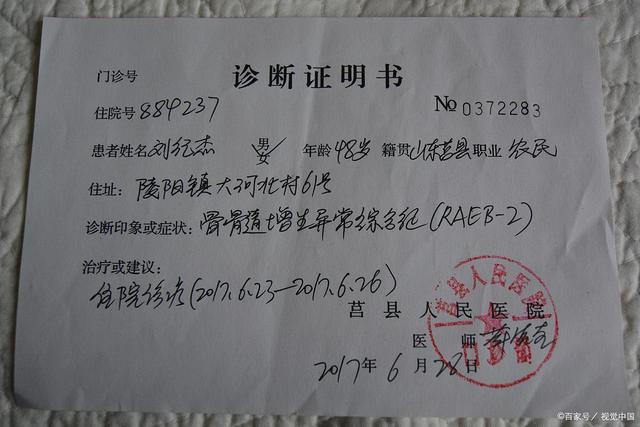 诊断证明书
门诊号
住院号 884237 No 0372283
患者姓名 刘行杰 男 女 年龄 48岁 籍贯 山东莒县 职业 农民
住址: 陵阳镇大河北村61号
诊断印象或症状: 骨骨道增生异常综合纪(RAEB-2)
治疗或建议:
住院诊疗(2017.6.23—2017.6.26)
莒县人民医院
莒县人民医院
医师
2017年6月28日
©百家号/视觉中国